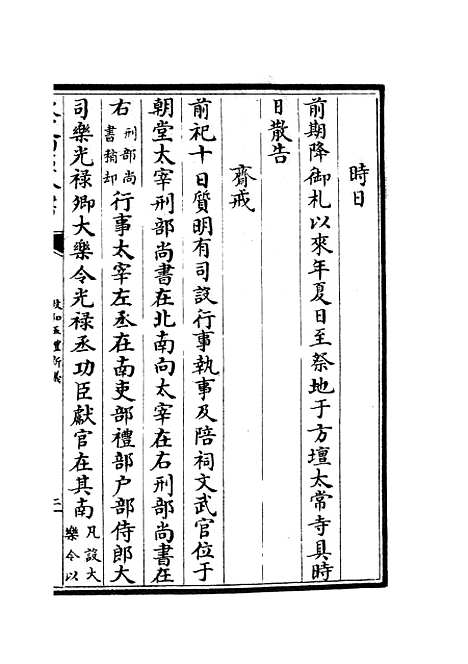 時日
前期降御札以來年夏日至祭地于方壇太常寺具時
日散告
齋戒
前祀十日質明有司設行事執事及陪祠文武官位于
朝堂太宰刑部尚書在北南向太宰在右刑部尚書在
右刑部尚書稍却行事太宰左丞在南吏部禮部户部侍郎大
司樂光禄卿大樂令光禄丞功臣獻官在其南凡設大樂令以
政和五禮新儀
三